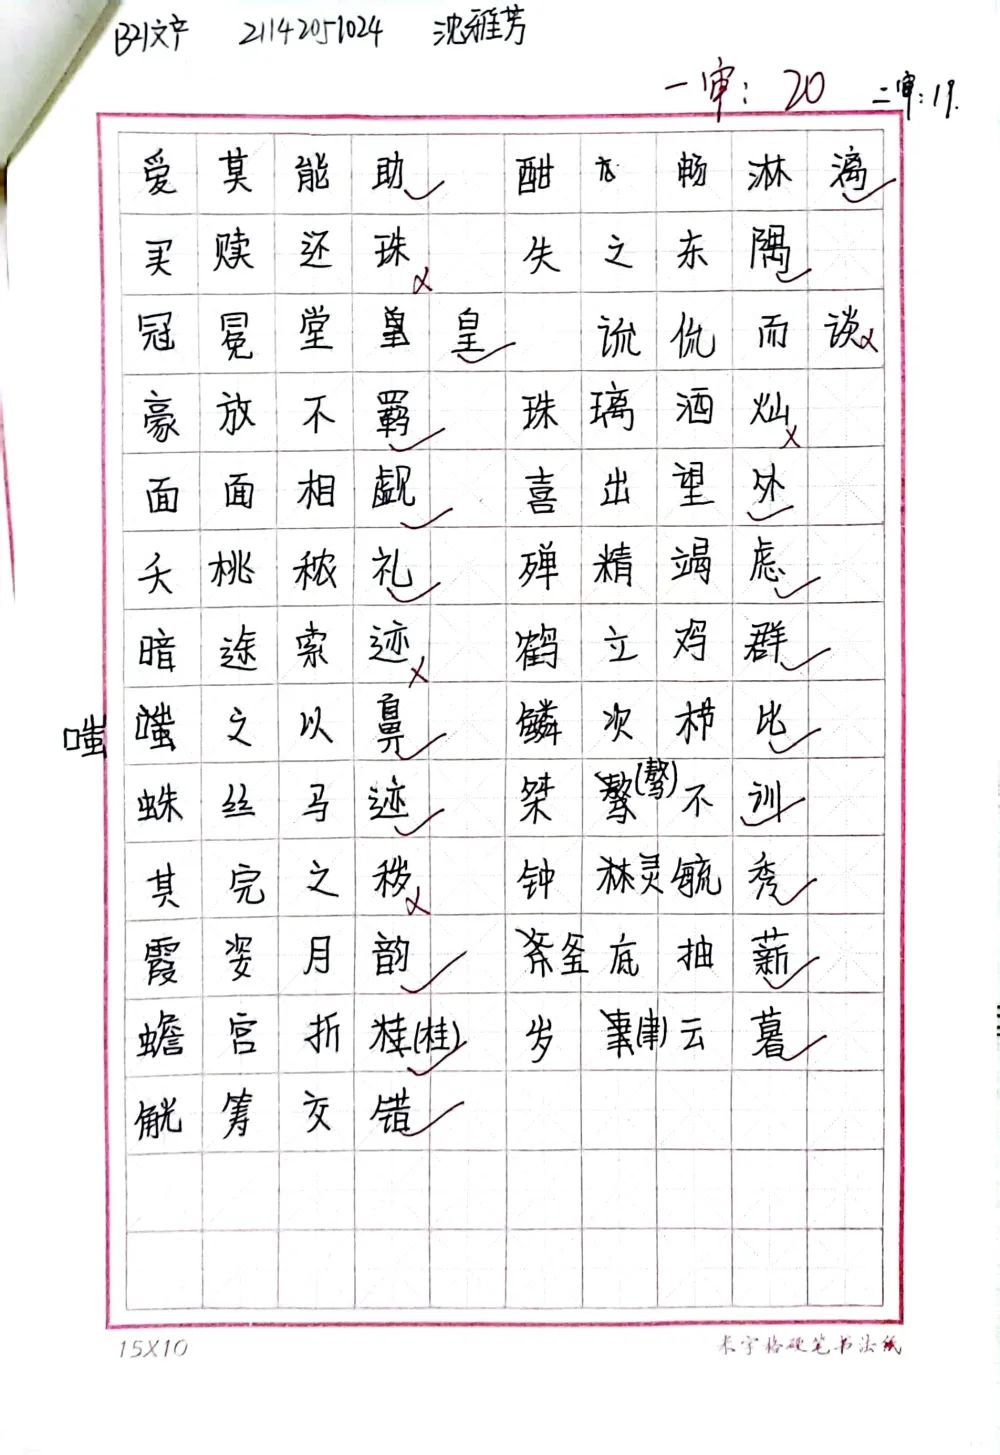 B21文产 21142051024 沈雅芳
一审：20 二审：19.
爱莫能助 酣 畅淋漓
买赎还珠 失之东隅
冠冕堂皇皇 侃而谈
豪放不羁 珠璃洒灿
面面相觑 喜出望外
夭桃秾礼 殚精竭虑
暗途索迹 鹤立鸡群
嗤 嗤之以鼻 鳞次栉比
蛛丝马迹 桀骜(骜)不训
其完之秽 钟灵毓秀
霞姿月韵 釜底抽薪
蟾宫折桂(桂) 岁聿(聿)云暮
觥筹交错
15X10 米字格硬笔书法纸